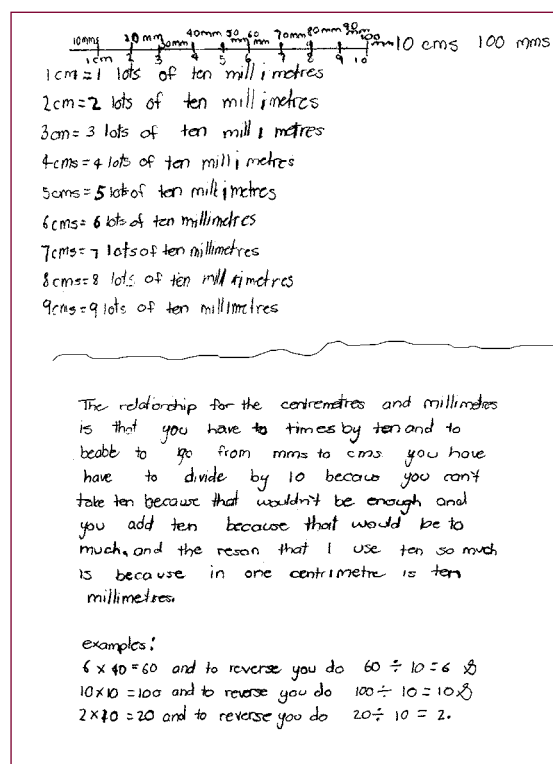 10mms 20mm 30mm 40mm 50mm 60mm 70mm 80mm 90mm 100mm 10 cms 100 mms
1cm 2 3 4 5 6 7 8 9 10
1cm = 1 lots of ten millimetres
2cm = 2 lots of ten millimetres
3cm = 3 lots of ten millimetres
4cms = 4 lots of ten millimetres
5cms = 5 lots of ten millimetres
6cms = 6 lots of ten millimetres
7cms = 7 lots of ten millimetres
8cms = 8 lots of ten millimetres
9cms = 9 lots of ten millimetres
The relationship for the centremetres and millimetres
is that you have to times by ten and to
beable to go from mms to cms you have
have to divide by 10 becaus you can't
take ten because that wouldn't be enough and
you add ten because that would be to
much, and the reson that I use ten so much
is because in one centrimetre is ten
millimetres.
examples:
6 x 10 = 60 and to reverse you do 60 ÷ 10 = 6 &
10 x 10 = 100 and to reverse you do 100 ÷ 10 = 10 &
2 x 10 = 20 and to reverse you do 20 ÷ 10 = 2.